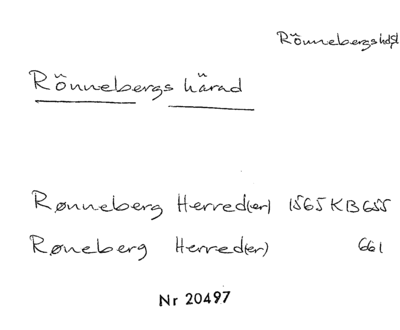 Rönnebergs hdsl
Rönnebergs härad
Rønneberg Herred(er) 1565 KB 655
Røneberg Herred(er) 661
Nr 20497